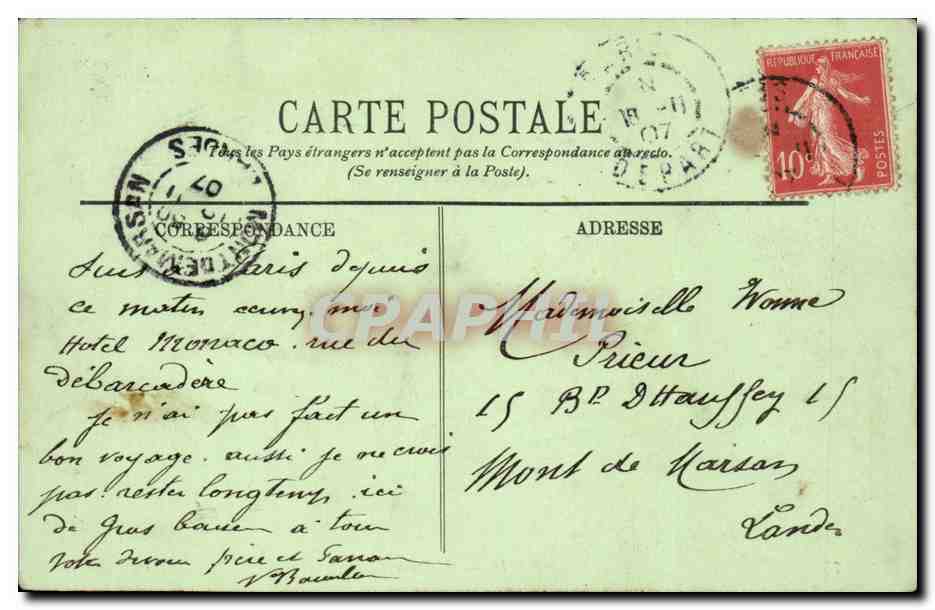 CARTE POSTALE
Tous les Pays étrangers n'acceptent pas la Correspondance au recto.
(Se renseigner à la Poste).
RÉPUBLIQUE FRANÇAISE
10c
POSTES
07
DEPART
MONT DE MARSAN
07
CORRESPONDANCE
ADRESSE
Suis à Paris depuis
ce matin
Hotel Monaco. rue du
Débarcadère
Je n'ai pas fait un
bon voyage. aussi je ne crois
pas rester longtemps ici
de gros baisers à tous
votre père et
Mademoiselle Yvonne
Prieur
15 Bd D'Haussey 15
Mont de Marsan
Landes
CPAPHIL